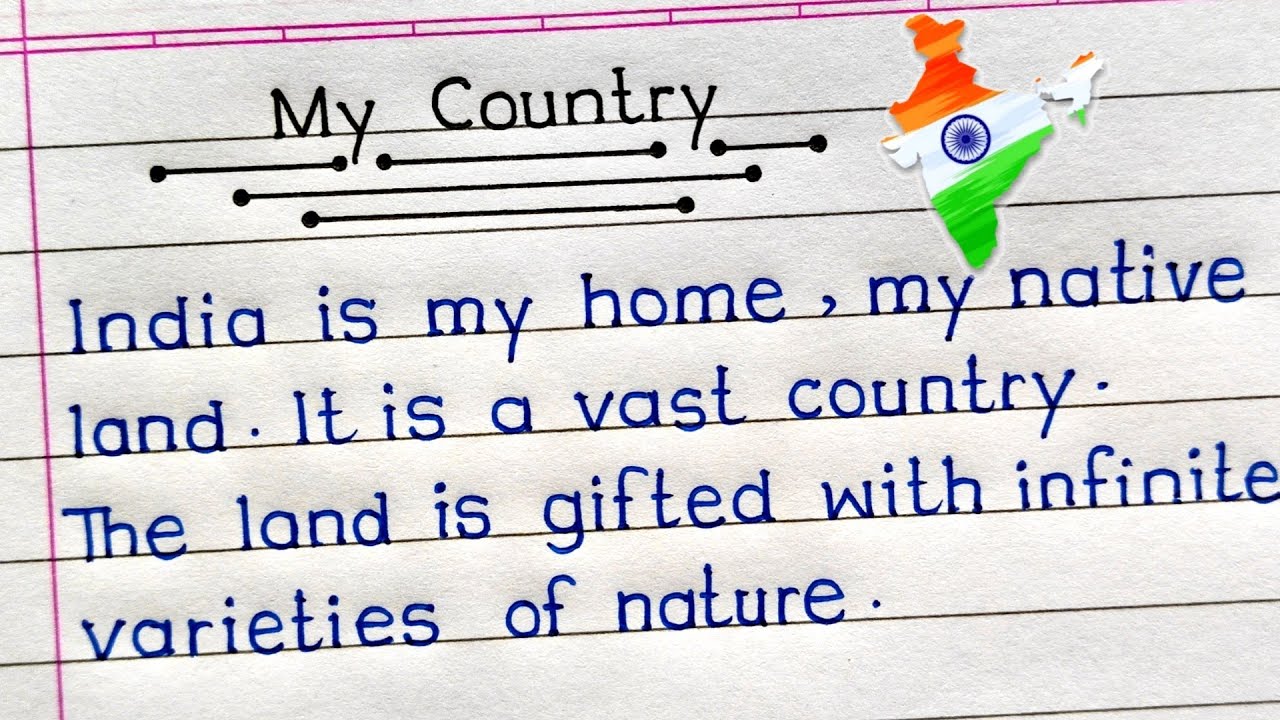 My Country
India is my home, my native
land. It is a vast country.
The land is gifted with infinite
varieties of nature.